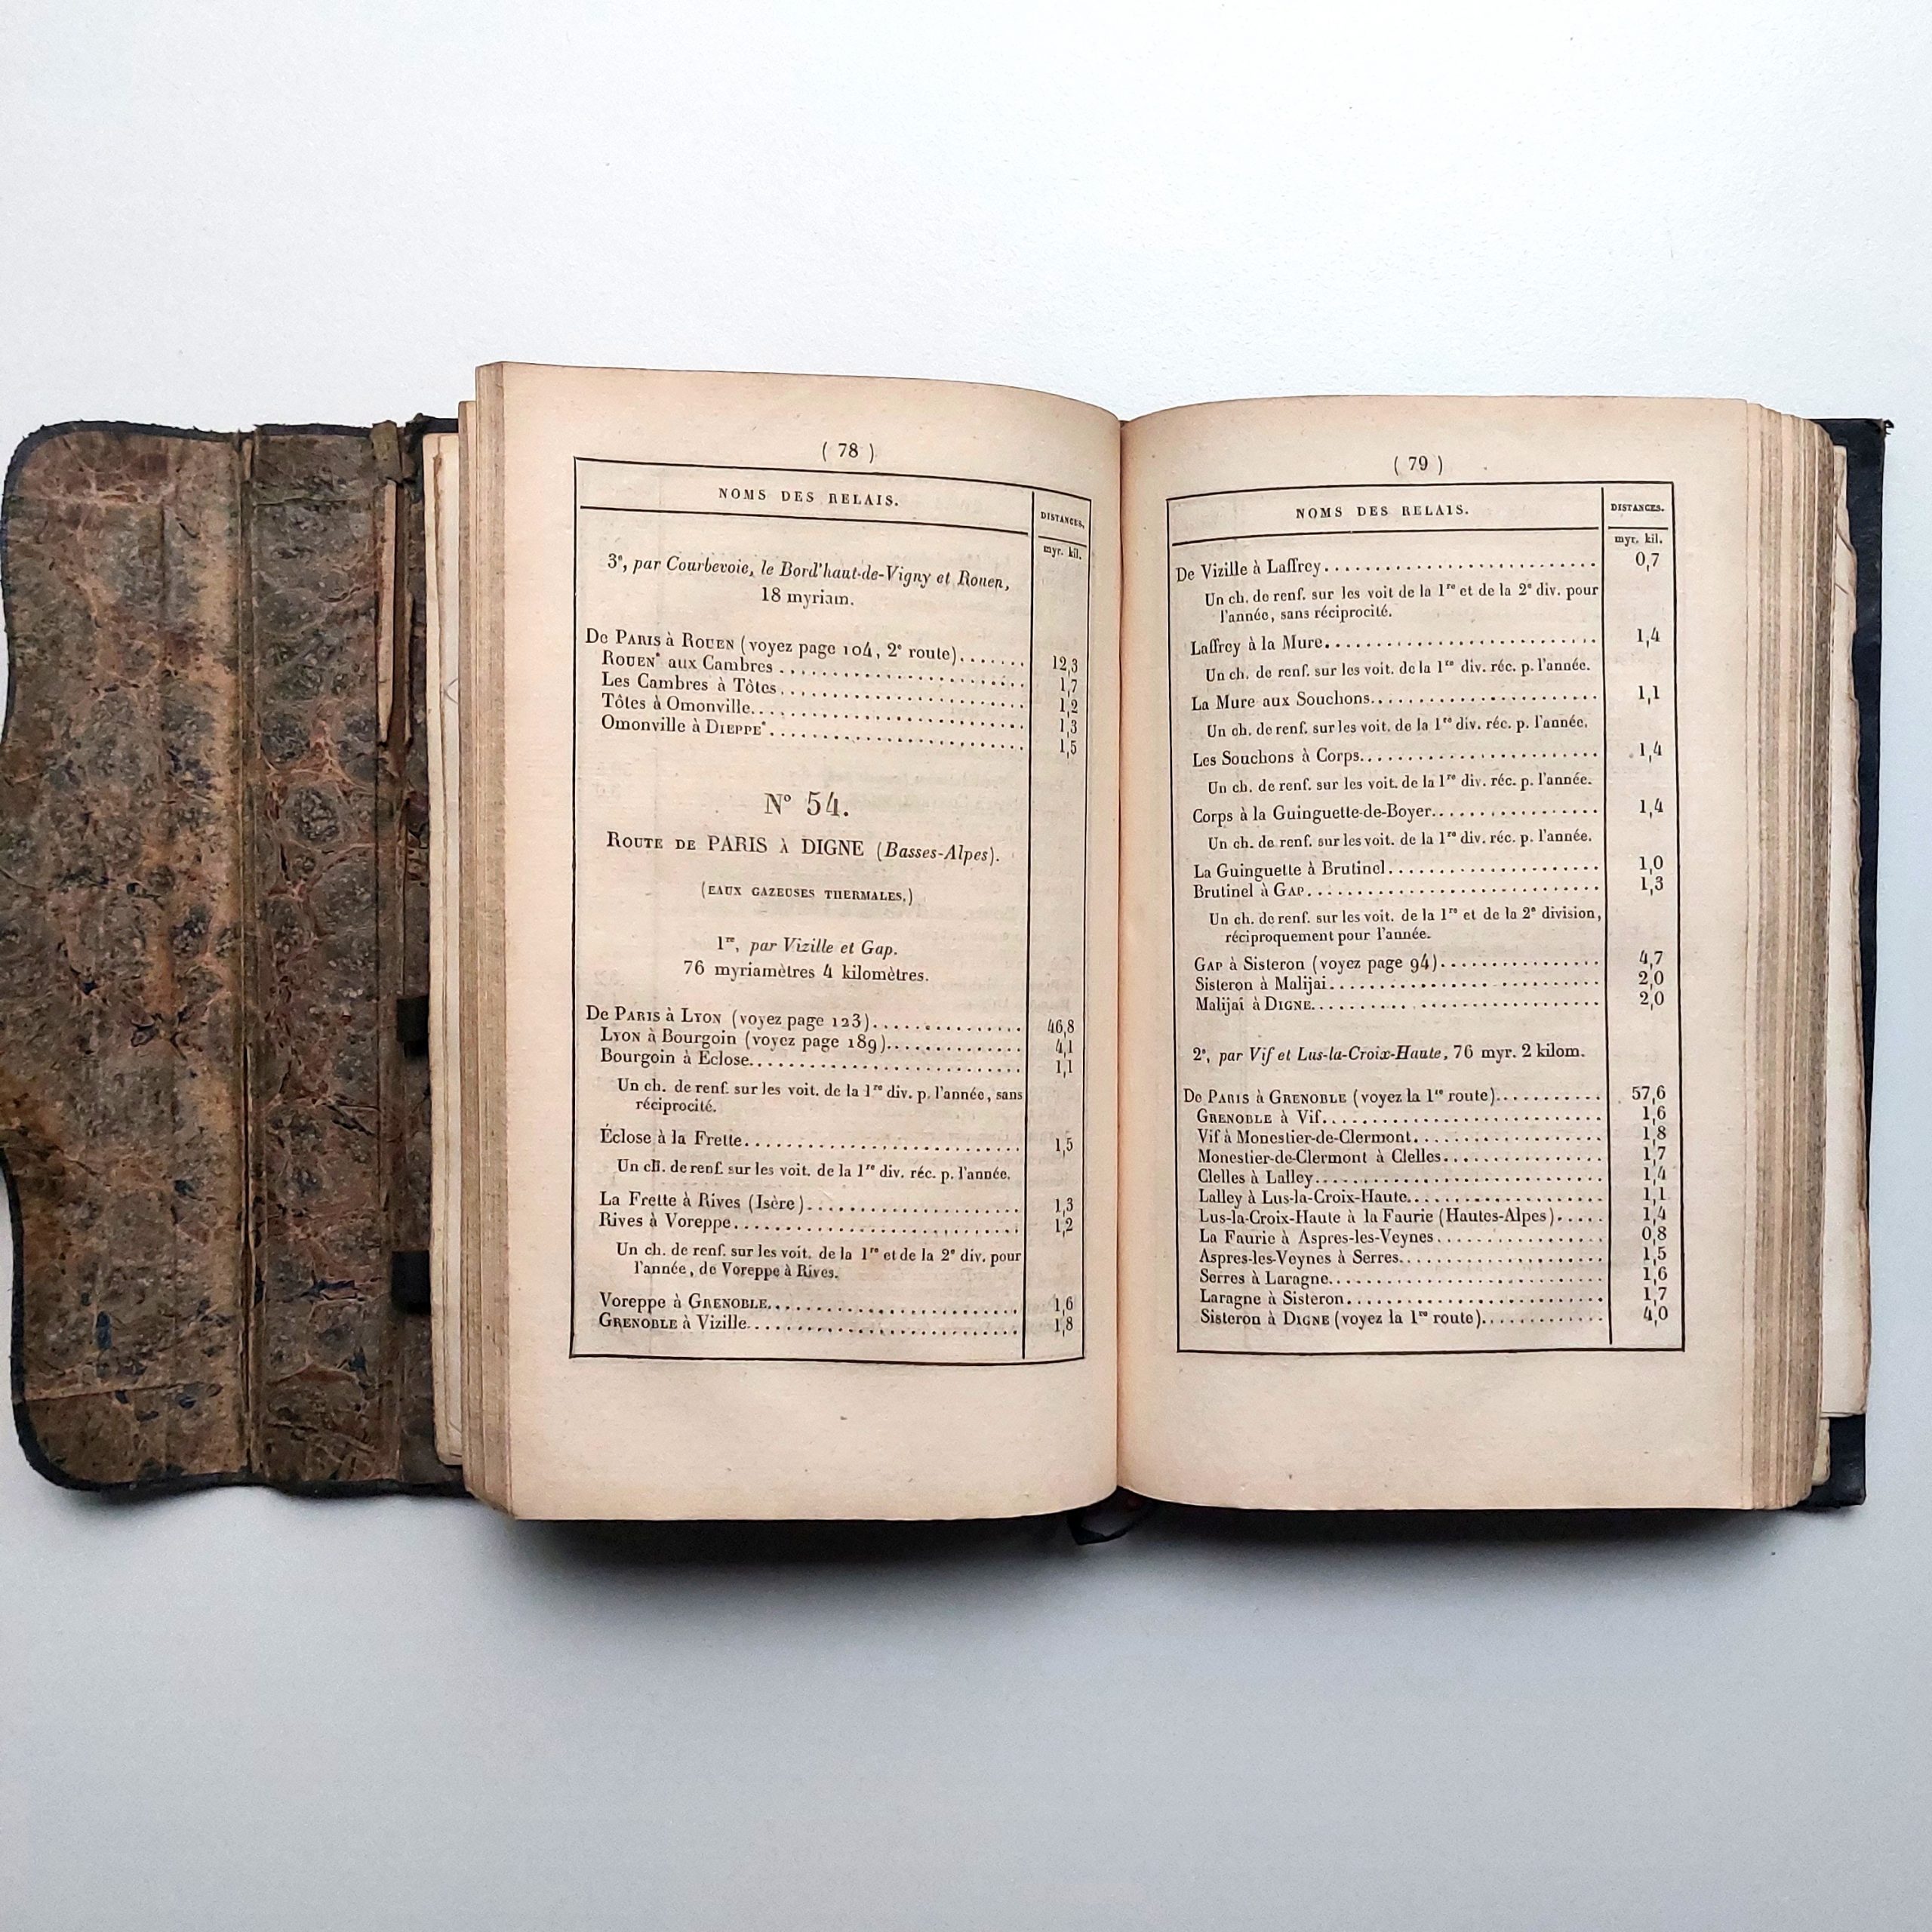 ( 78 )
NOMS DES RELAIS.
DISTANCES.
myr. kil.
3e, par Courbevoie, le Bord'haut-de-Vigny et Rouen,
18 myriam.
De PARIS à ROUEN (voyez page 104, 2e route)....... 12,3
ROUEN* aux Cambres ........ 1,7
Les Cambres à Tôtes........ 1,2
Tôtes à Omonville........ 1,3
Omonville à DIEPPE*........ 1,5
N° 54.
ROUTE DE PARIS À DIGNE (Basses-Alpes).
(EAUX GAZEUSES THERMALES.)
1re, par Vizille et Gap.
76 myriamètres 4 kilomètres.
De PARIS à LYON (voyez page 123)........ 46,8
LYON à Bourgoin (voyez page 189)........ 4,1
Bourgoin à Eclose........ 1,1
Un ch. de renf. sur les voit. de la 1re div. p. l'année, sans
réciprocité.
Éclose à la Frette........ 1,5
Un ch. de renf. sur les voit. de la 1re div. réc. p. l'année.
La Frette à Rives (Isère)........ 1,3
Rives à Voreppe........ 1,2
Un ch. de renf. sur les voit. de la 1re et de la 2e div. pour
l'année, de Voreppe à Rives.
Voreppe à GRENOBLE........ 1,6
GRENOBLE à Vizille........ 1,8
( 79 )
NOMS DES RELAIS.
DISTANCES.
myr. kil.
De Vizille à Laffrey........ 0,7
Un ch. de renf. sur les voit de la 1re et de la 2e div. pour
l'année, sans réciprocité.
Laffrey à la Mure........ 1,4
Un ch. de renf. sur les voit. de la 1re div. réc. p. l'année.
La Mure aux Souchons........ 1,1
Un ch. de renf. sur les voit. de la 1re div. réc. p. l'année.
Les Souchons à Corps........ 1,4
Un ch. de renf. sur les voit. de la 1re div. réc. p. l'année.
Corps à la Guinguette-de-Boyer........ 1,4
Un ch. de renf. sur les voit. de la 1re div. réc. p. l'année.
La Guinguette à Brutinel........ 1,0
Brutinel à GAP........ 1,3
Un ch. de renf. sur les voit. de la 1re et de la 2e division,
réciproquement pour l'année.
GAP à Sisteron (voyez page 94)........ 4,7
Sisteron à Malijai........ 2,0
Malijai à DIGNE........ 2,0
2e, par Vif et Lus-la-Croix-Haute, 76 myr. 2 kilom.
De PARIS à GRENOBLE (voyez la 1re route)........ 57,6
GRENOBLE à Vif........ 1,6
Vif à Monestier-de-Clermont........ 1,8
Monestier-de-Clermont à Clelles........ 1,7
Clelles à Lalley........ 1,4
Lalley à Lus-la-Croix-Haute........ 1,1
Lus-la-Croix-Haute à la Faurie (Hautes-Alpes)..... 1,4
La Faurie à Aspres-les-Veynes........ 0,8
Aspres-les-Veynes à Serres........ 1,5
Serres à Laragne........ 1,6
Laragne à Sisteron........ 1,7
Sisteron à DIGNE (voyez la 1re route)........ 4,0